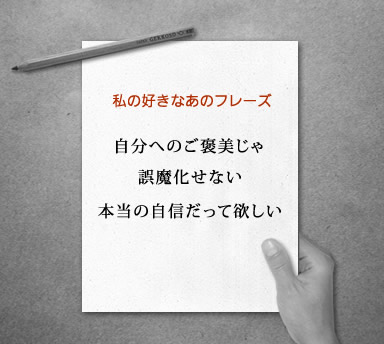 私の好きなあのフレーズ
自分へのご褒美じゃ
誤魔化せない
本当の自信だって欲しい